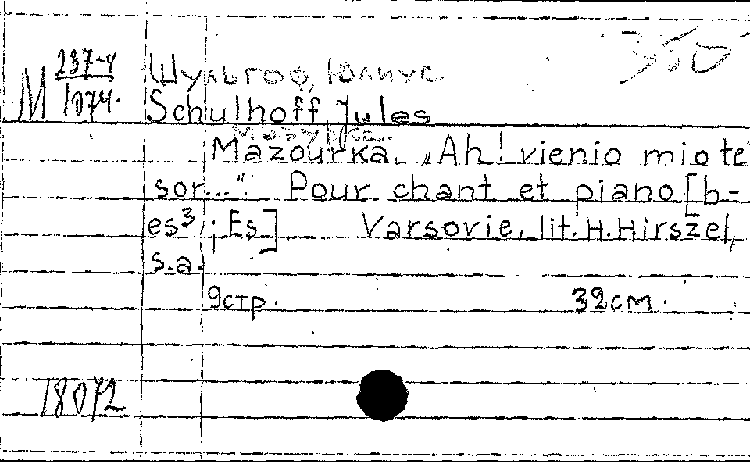 350
М 237-8
1074.
Шульгоф, Юлиус.
Schulhoff, Jules
Мазурка.
Mazourka. „Ah! vienio mio te
sor..." Pour chant et piano [b-
es³; Es] Varsovie, lit. H. Hirszel,
s.a.
9стр. 32см.
18072